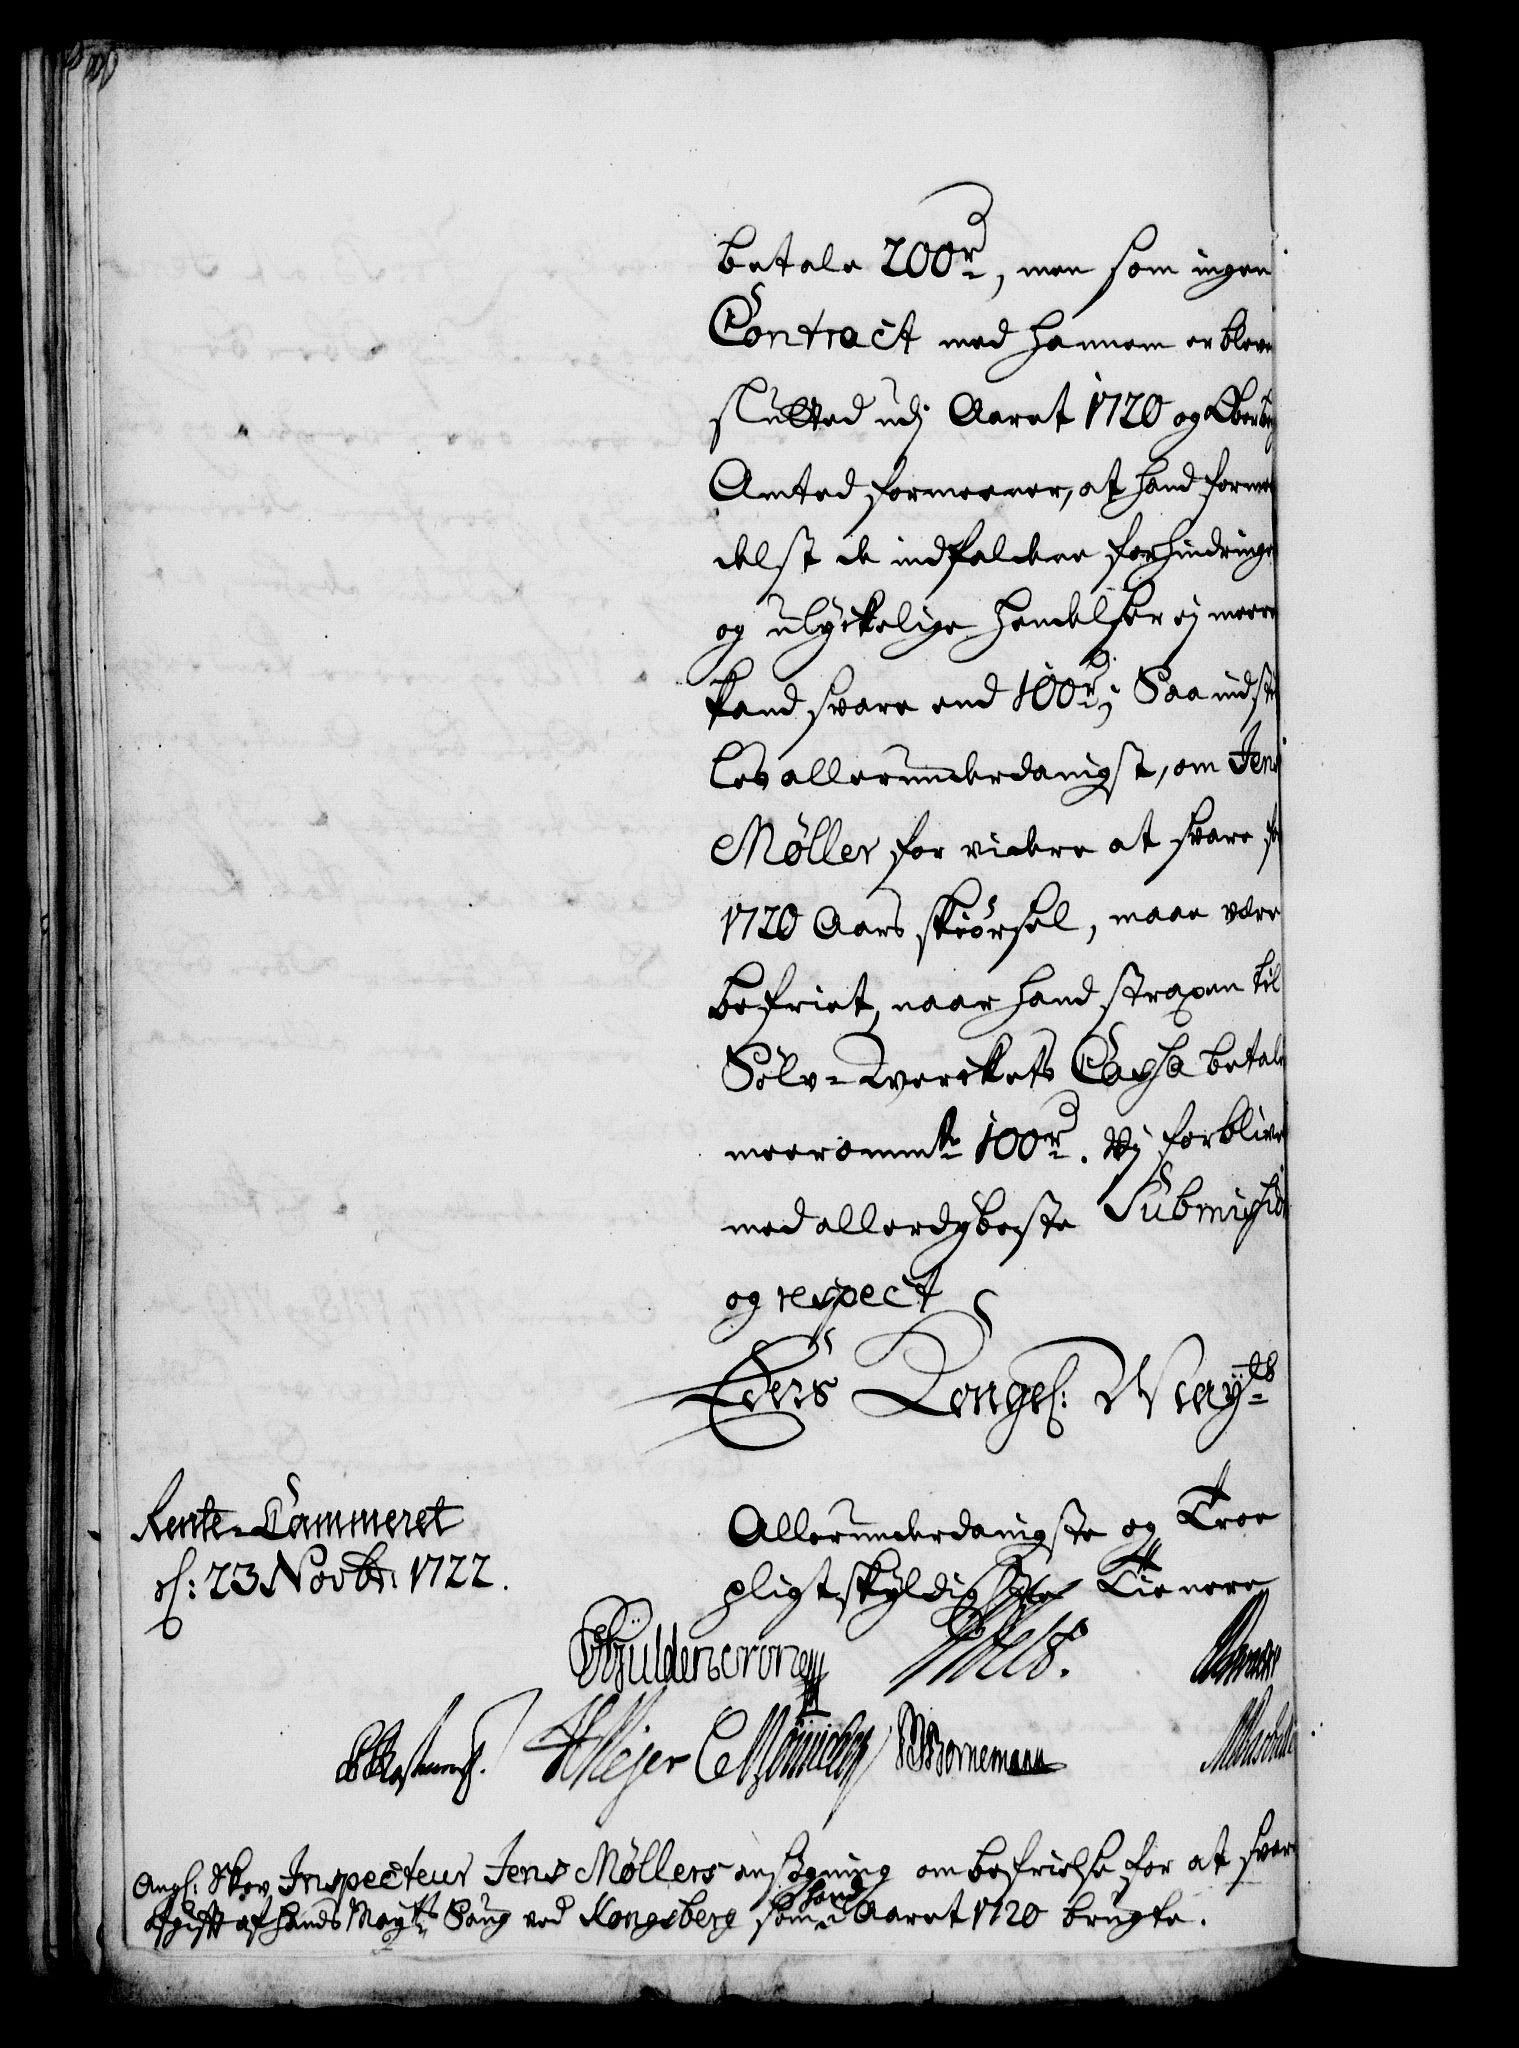 betale 200 rd, men som ingen
Contract med hannem er bleve
slutted udj Aaret 1720 og Ober berg
Amted formeener, at hand forme
delst de indfaldene forhindringe
og ulyckelige hendelser ej meere
kand svare end 100 rd; Saa indstil
les allerunderdanigst, om Jens
Møller for videre at svare for
1720 Aars skiørsel, maae være
befriet, naar hand straxen til
Sølv-Werckets Cassa betaler
meerommte 100 rd. Wj forblive
med allerdybeste Submission
og respect
Eders Kongel: Mayts
Rente-Cammeret
d: 23 Novbr: 1722.
Allerunderdanigste og Troe
pligtskyldigste Tienere
Güldencrone
Meyer
Bornemann
Ang: Skov Inspecteur Jens Møllers ansøgning om befrielse for at svare
afgift af Hands Mayts Saug ved Kongsberg som hand i Aaret 1720 brugte.